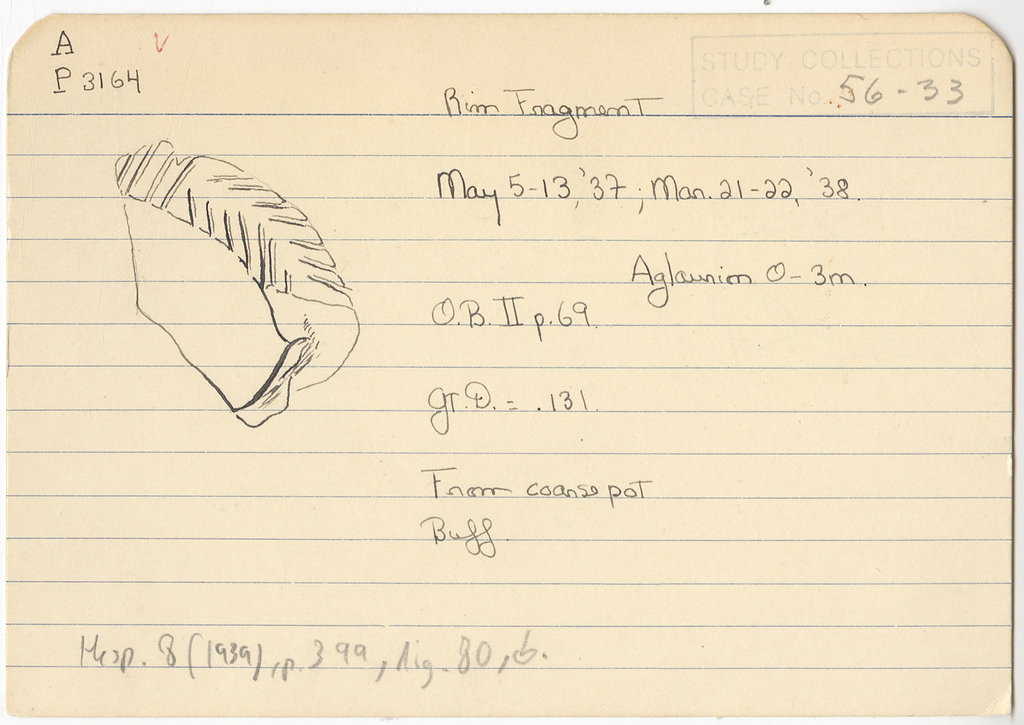 A
P 3164
STUDY COLLECTIONS
CASE No. 56-33
Rim Fragment
May 5-13, '37; Mar. 21-22, '38.
Aglaurion 0-3m.
O.B. II p.69.
Gr.D. = .131.
From coarse pot
Buff.
Hesp. 8 (1939), p. 399, fig. 80, b.